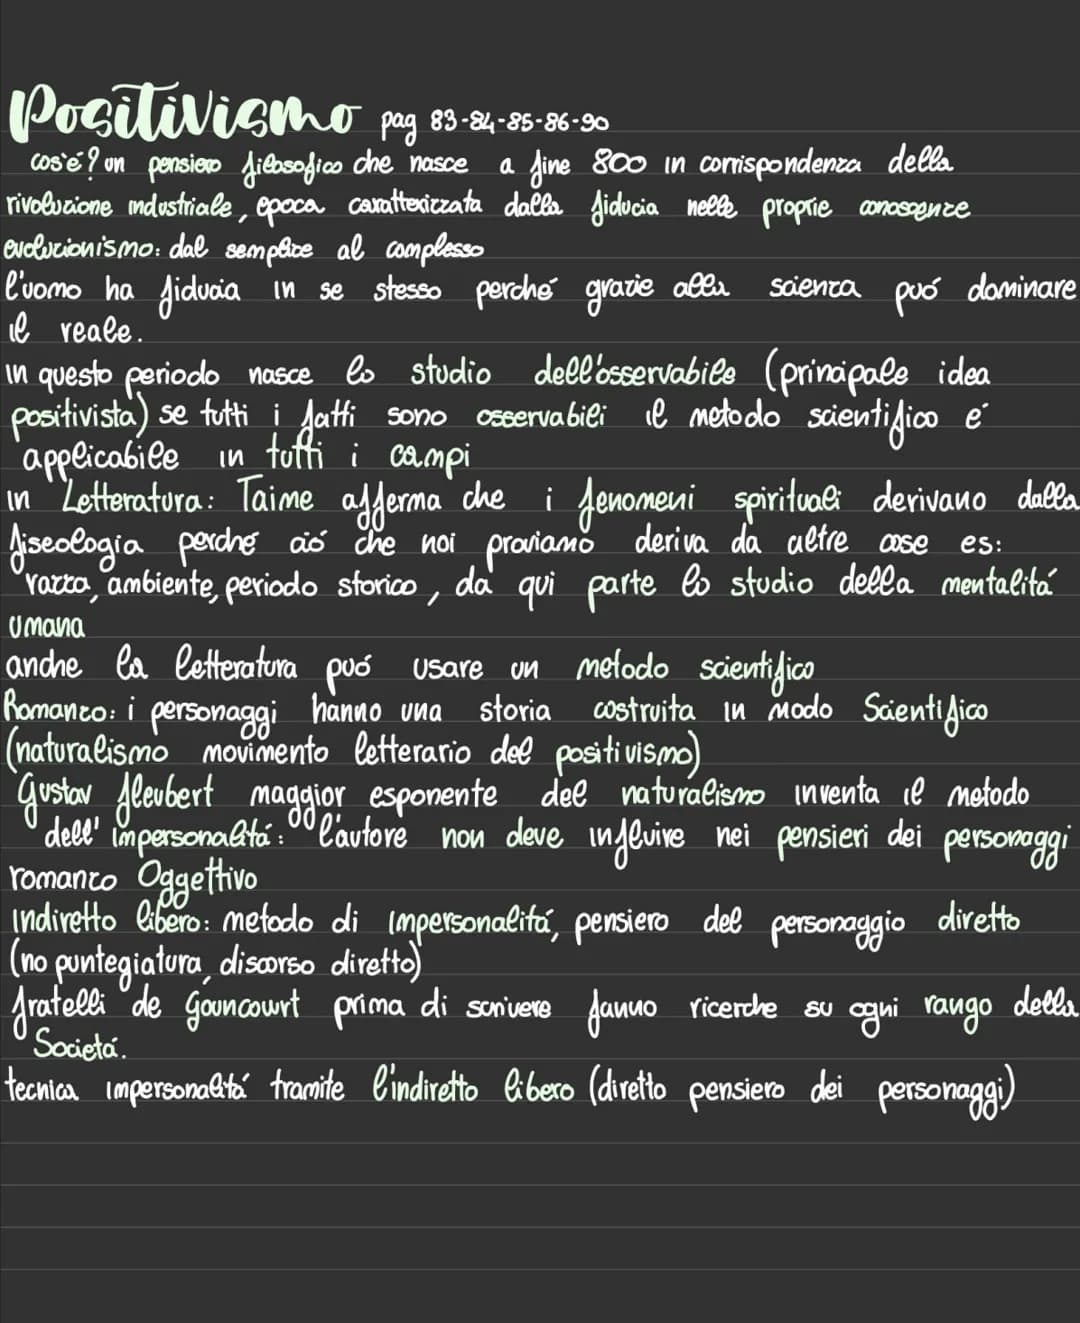 Positivismo pag 83-84-85-86-90
cos'é? un pensiero filosofico che nasce a fine 800 in corrispondenza della
rivoluzione industriale, epoca caratterizzata dalla fiducia nelle proprie conoscenze
evoluzionismo: dal semplice al complesso
l'uomo ha fiducia in se stesso perché grazie alla scienza puó dominare
il reale.
in questo periodo nasce lo studio dell'osservabile (principale idea
positivista) se tutti i fatti sono osservabili il metodo scientifico é
applicabile in tutti i campi
in Letteratura: Taime afferma che i fenomeni spirituali derivano dalla
fiseologia perché ció che noi proviamo deriva da altre cose es:
razza, ambiente, periodo storico, da qui parte lo studio della mentalitá
umana
anche la letteratura puó usare un metodo scientifico
Romanzo: i personaggi hanno una storia costruita in modo Scientifico
(naturalismo movimento letterario del positivismo)
Gustav fleubert maggior esponente del naturalismo inventa il metodo
dell'impersonalitá: l'autore non deve influire nei pensieri dei personaggi
romanzo Oggettivo
indiretto libero: metodo di impersonalitá, pensiero del personaggio diretto
(no puntegiatura, discorso diretto)
fratelli de Gouncourt prima di scrivere fanno ricerche su ogni rango della
Societá.
tecnica impersonalitá tramite l'indiretto libero (diretto pensiero dei personaggi)